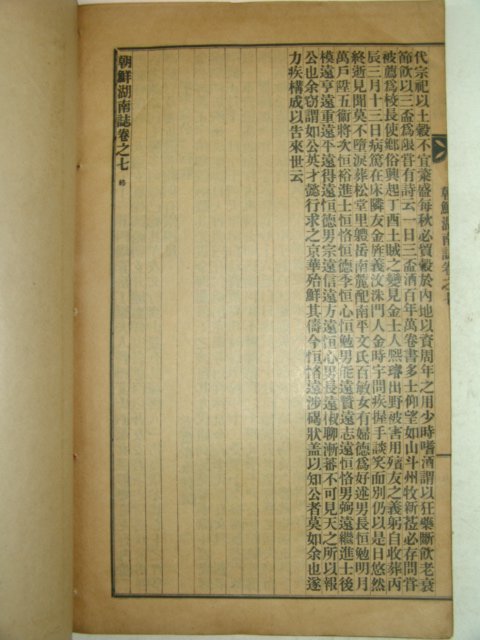 代宗祀以土穀不宜粢盛每秋必貿穀於內地以資周年之用少時嗜酒謂以狂藥斷飮老衰
節飮以三盃爲限嘗有詩云一日三盃酒百年萬卷書多士仰望如山斗州牧新莅必存問嘗
被薦爲校長使鄕俗興起丁酉土賊之變見金士人熙璿出野被害用殯友之義躬自收葬丙
辰三月十三日病篤在床隣友金旌義汶洙門人金時宇問疾握手談笑而別仍以是日悠然
終逝見聞莫不墮淚葬松堂里體岳南麓配南平文氏百敏女有婦德爲好述男長恒勉明月
萬戶陞五衞將次恒裕進士恒恪恒德季恒心恒勉男能遠贊遠志遠恒恪男弼遠繼進士後
模遠亨遠重遠平遠得遠恒德男宗遠信遠方遠恒心男長遠俶聊漸蕃不可見天之所以報
公也余窃謂如公英才懿行求之京華殆鮮其儔今恒恪遠涉碣狀盖以知公者莫如余也遂
力疾構成以告來世云
朝鮮湖南誌卷之七 終
朝鮮湖南誌卷之七